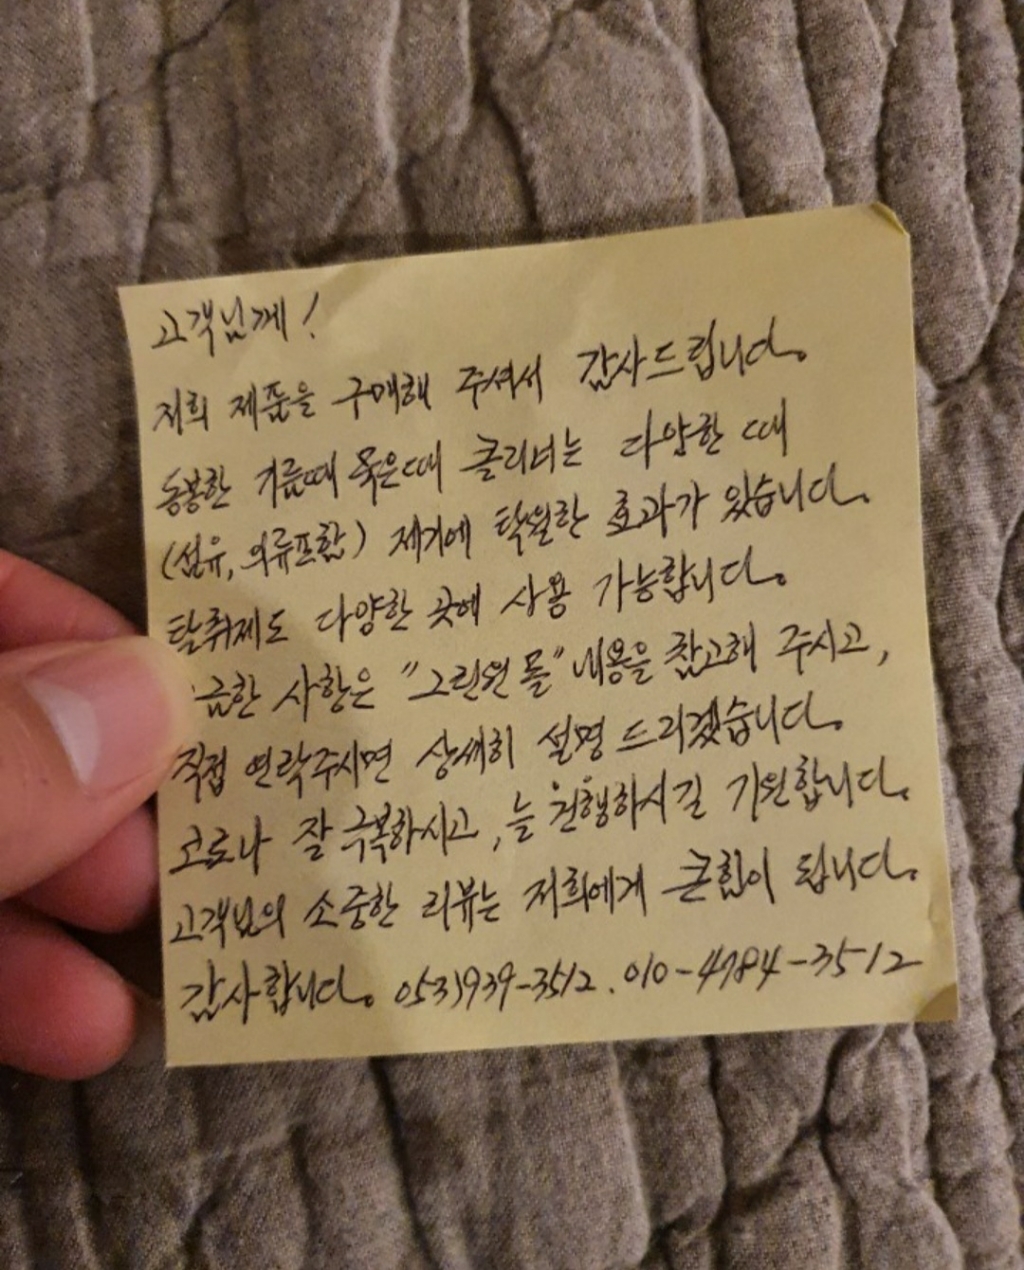 고객님께!
저희 제품을 구매해 주셔서 감사드립니다.
동봉한 기름때 묵은때 클리너는 다양한 때
(섬유, 의류포함) 제거에 탁월한 효과가 있습니다.
탈취제도 다양한 곳에 사용 가능합니다.
금한 사항은 "그린원 몰" 내용을 참고해 주시고,
직접 연락주시면 상세히 설명 드리겠습니다.
코로나 잘 극복하시고, 늘 건행하시길 기원합니다.
고객님의 소중한 리뷰는 저희에게 큰힘이 됩니다.
감사합니다. 053)939-3512. 010-4784-3512